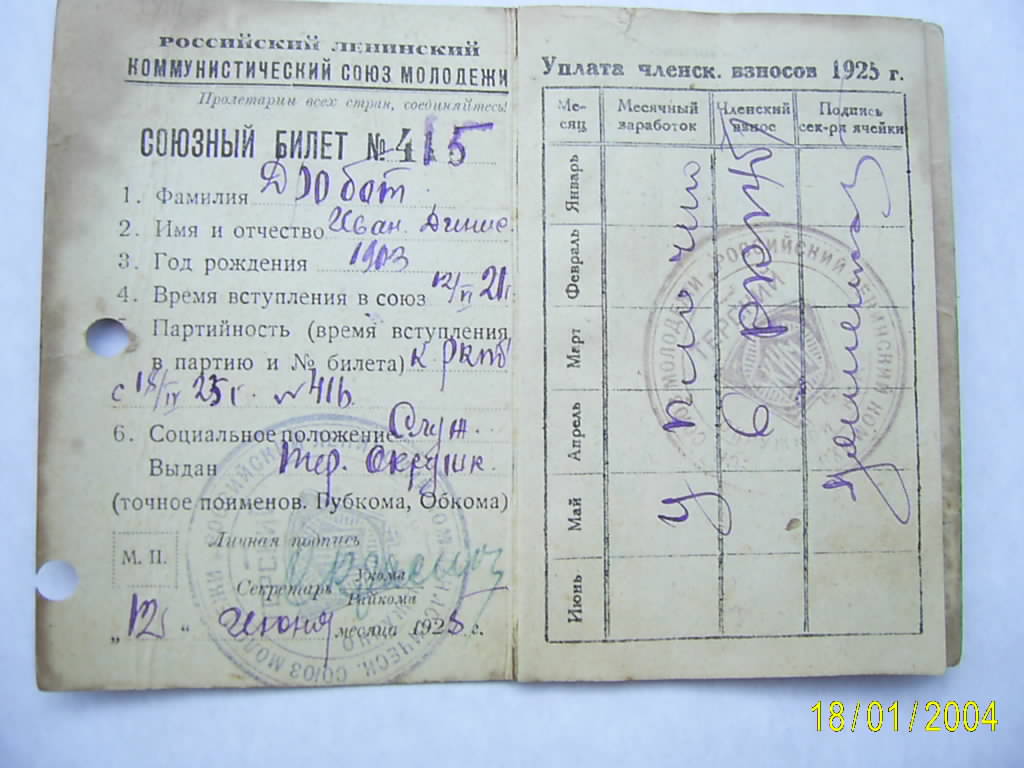 РОССИЙСКИЙ ЛЕНИНСКИЙ
КОММУНИСТИЧЕСКИЙ СОЮЗ МОЛОДЕЖИ
Пролетарии всех стран, соединяйтесь!
СОЮЗНЫЙ БИЛЕТ № 415
1. Фамилия Дробот
2. Имя и отчество Иван
3. Год рождения 1903
4. Время вступления в союз 12/VI 21 г.
Партийность (время вступления
в партию и № билета) к РКПб
с 18/IV 25 г. № 416
6. Социальное положение Служ.
Выдан Тер. Окружк.
(точное поименов. Губкома, Обкома)
М. П.
Личная подпись
Секретарь Укома
Райкома
„12“ Июня месяца 1925 г.
Уплата членск. взносов 1925 г.
Ме-
сяц
Месячный
заработок
Членский
взнос
Подпись
сек-ря ячейки
Январь
Февраль
Март
Апрель
Май
Июнь
Уплочено
в РКПб
18/01/2004